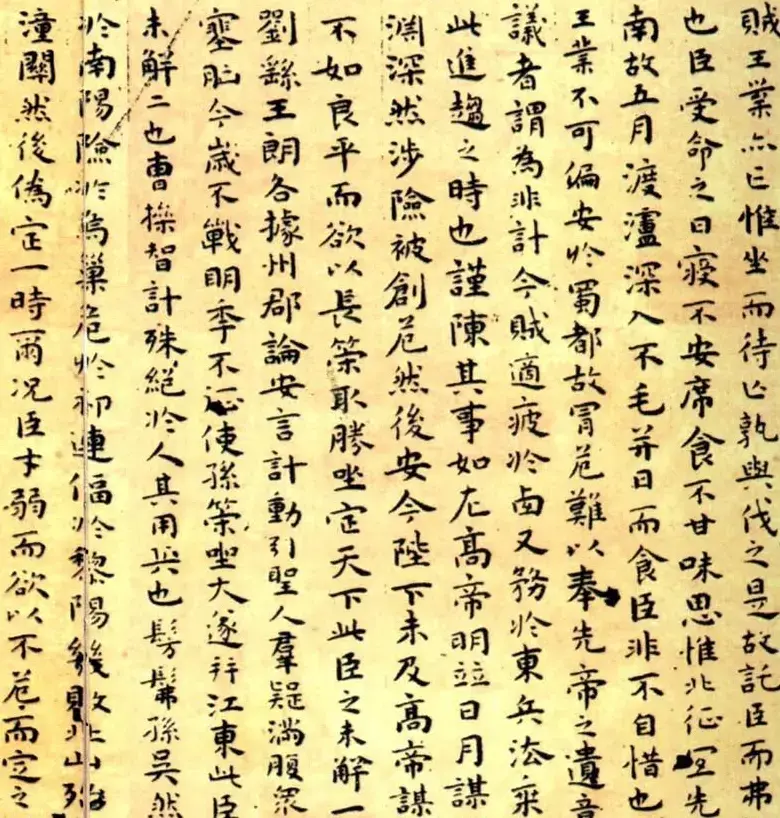 賊王業亦亡惟坐而待亡孰與伐之是故託臣而弗
也臣受命之日寑不安席食不甘味思惟北征宜先
南故五月渡瀘深入不毛并日而食臣非不自惜也
王業不可偏安於蜀都故冒危難以奉先帝之遺意
議者謂為非計今賊適疲於西又務於東兵法乘
此進趨之時也謹陳其事如左高帝明並日月謀
淵深然涉險被創危然後安今陛下未及高帝謀
不如良平而欲以長策取勝坐定天下此臣之未解一
劉繇王朗各據州郡論安言計動引聖人羣疑滿腹眾
塞胸今歲不戰明季不征使孫策坐大遂并江東此臣
未解二也曹操智計殊絕於人其用兵也髣髴孫吳然
於南陽險於烏巢危於祁連偪於黎陽幾敗北山殆
潼關然後僞定一時爾況臣才弱而欲以不危而定之